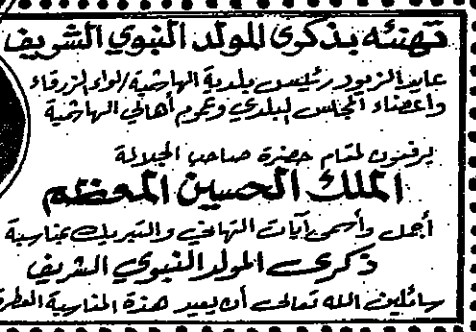 تهنئه بذكرى المولد النبوي الشريف
عايد الزيود رئيس بلدية الهاشمية / لواء الزرقاء
واعضاء المجلس البلدي وعموم أهالي الهاشمية
يرفعون لمقام حضرة صاحب الجلالة
الملك الحسين المعظم
أجمل وأسمى آيات التهاني والتبريك بمناسبة
ذكرى المولد النبوي الشريف
سائلين الله تعالى أن يعيد هذة المناسبة العطرة